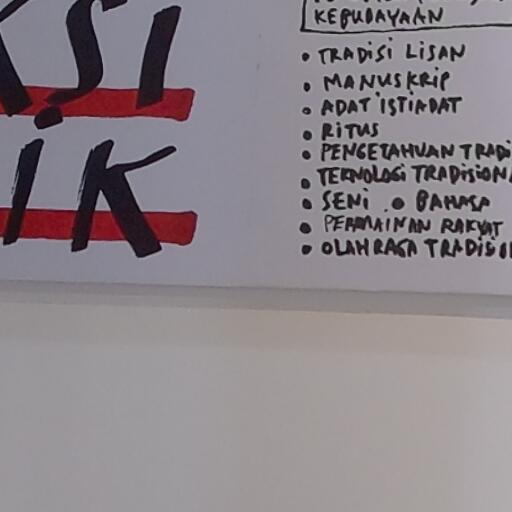 KSI
IK
KEBUDAYAAN
• TRADISI LISAN
• MANUSKRIP
• ADAT ISTIADAT
• RITUS
• PENGETAHUAN TRADI
• TEKNOLOGI TRADISIONA
• SENI • BAHASA
• PERMAINAN RAKYAT
• OLAHRAGA TRADISI